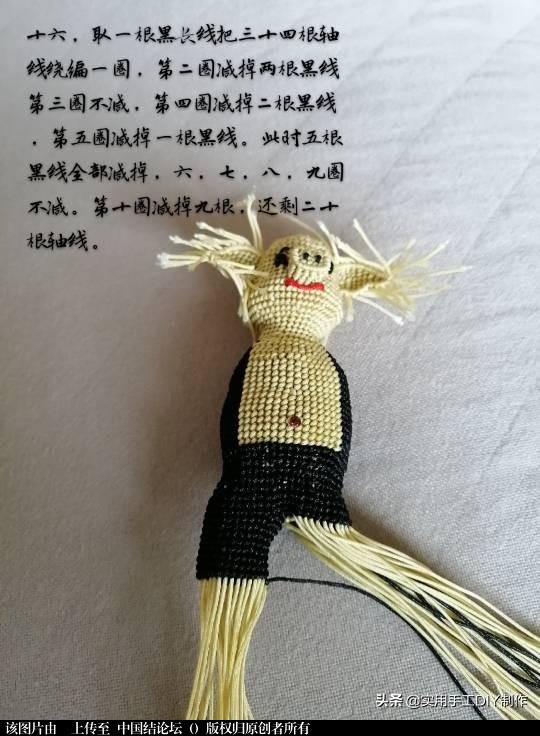 十六，取一根黑长线把三十四根轴
线绕编一圈，第二圈减掉两根黑线
第三圈不减，第四圈减掉二根黑线
，第五圈减掉一根黑线。此时五根
黑线全部减掉，六，七，八，九圈
不减。第十圈减掉九根，还剩二十
根轴线。
头条 @实用手工DIY制作
该图片由 上传至 中国结论坛 () 版权归原创者所有